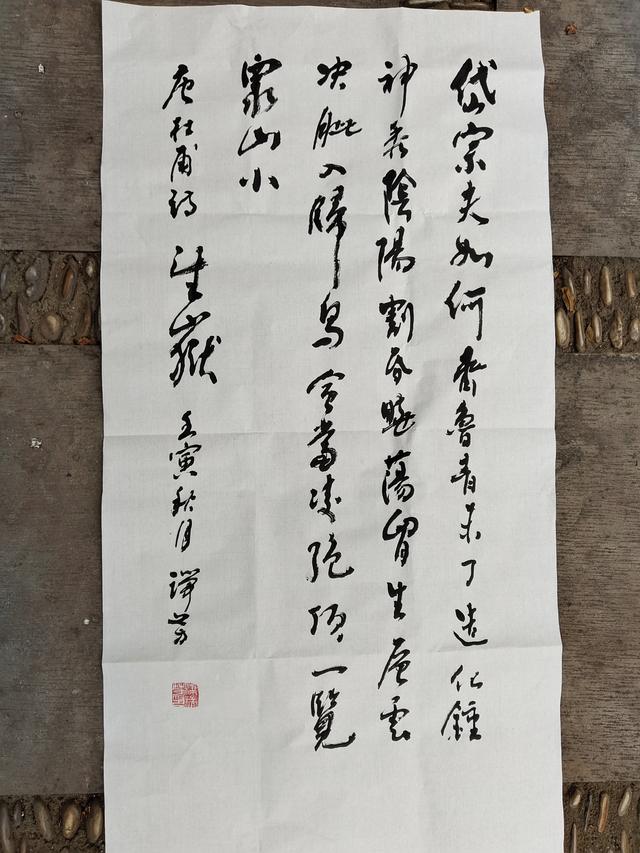 岱宗夫如何齊魯青未了造化鍾
神秀陰陽割昏曉蕩胷生層雲
决眥入歸鳥會當凌絕頂一覽
衆山小
唐杜甫詩望嶽壬寅秋月